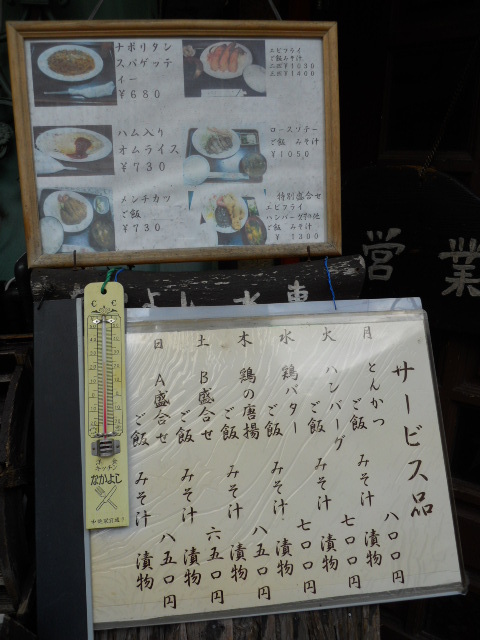 ナポリタン
スパゲッテ
ィー
¥680
エビフライ
ご飯 みそ汁
ハム入り
オムライス
¥730
ロースソテー
ご飯 みそ汁
¥1050
メンチカツ
ご飯
¥730
特別盛合せ
エビフライ
ご飯 みそ汁
¥1300
営業
サービス品
月 とんかつ ご飯 みそ汁 漬物 八〇〇円
火 ハンバーグ ご飯 みそ汁 漬物 七〇〇円
水 鶏バター ご飯 みそ汁 漬物 七〇〇円
木 鶏の唐揚 ご飯 みそ汁 漬物 八五〇円
土 B盛合せ ご飯 みそ汁 漬物 六五〇円
日 A盛合せ ご飯 みそ汁 漬物 八五〇円
C C
キッチン
なかよし